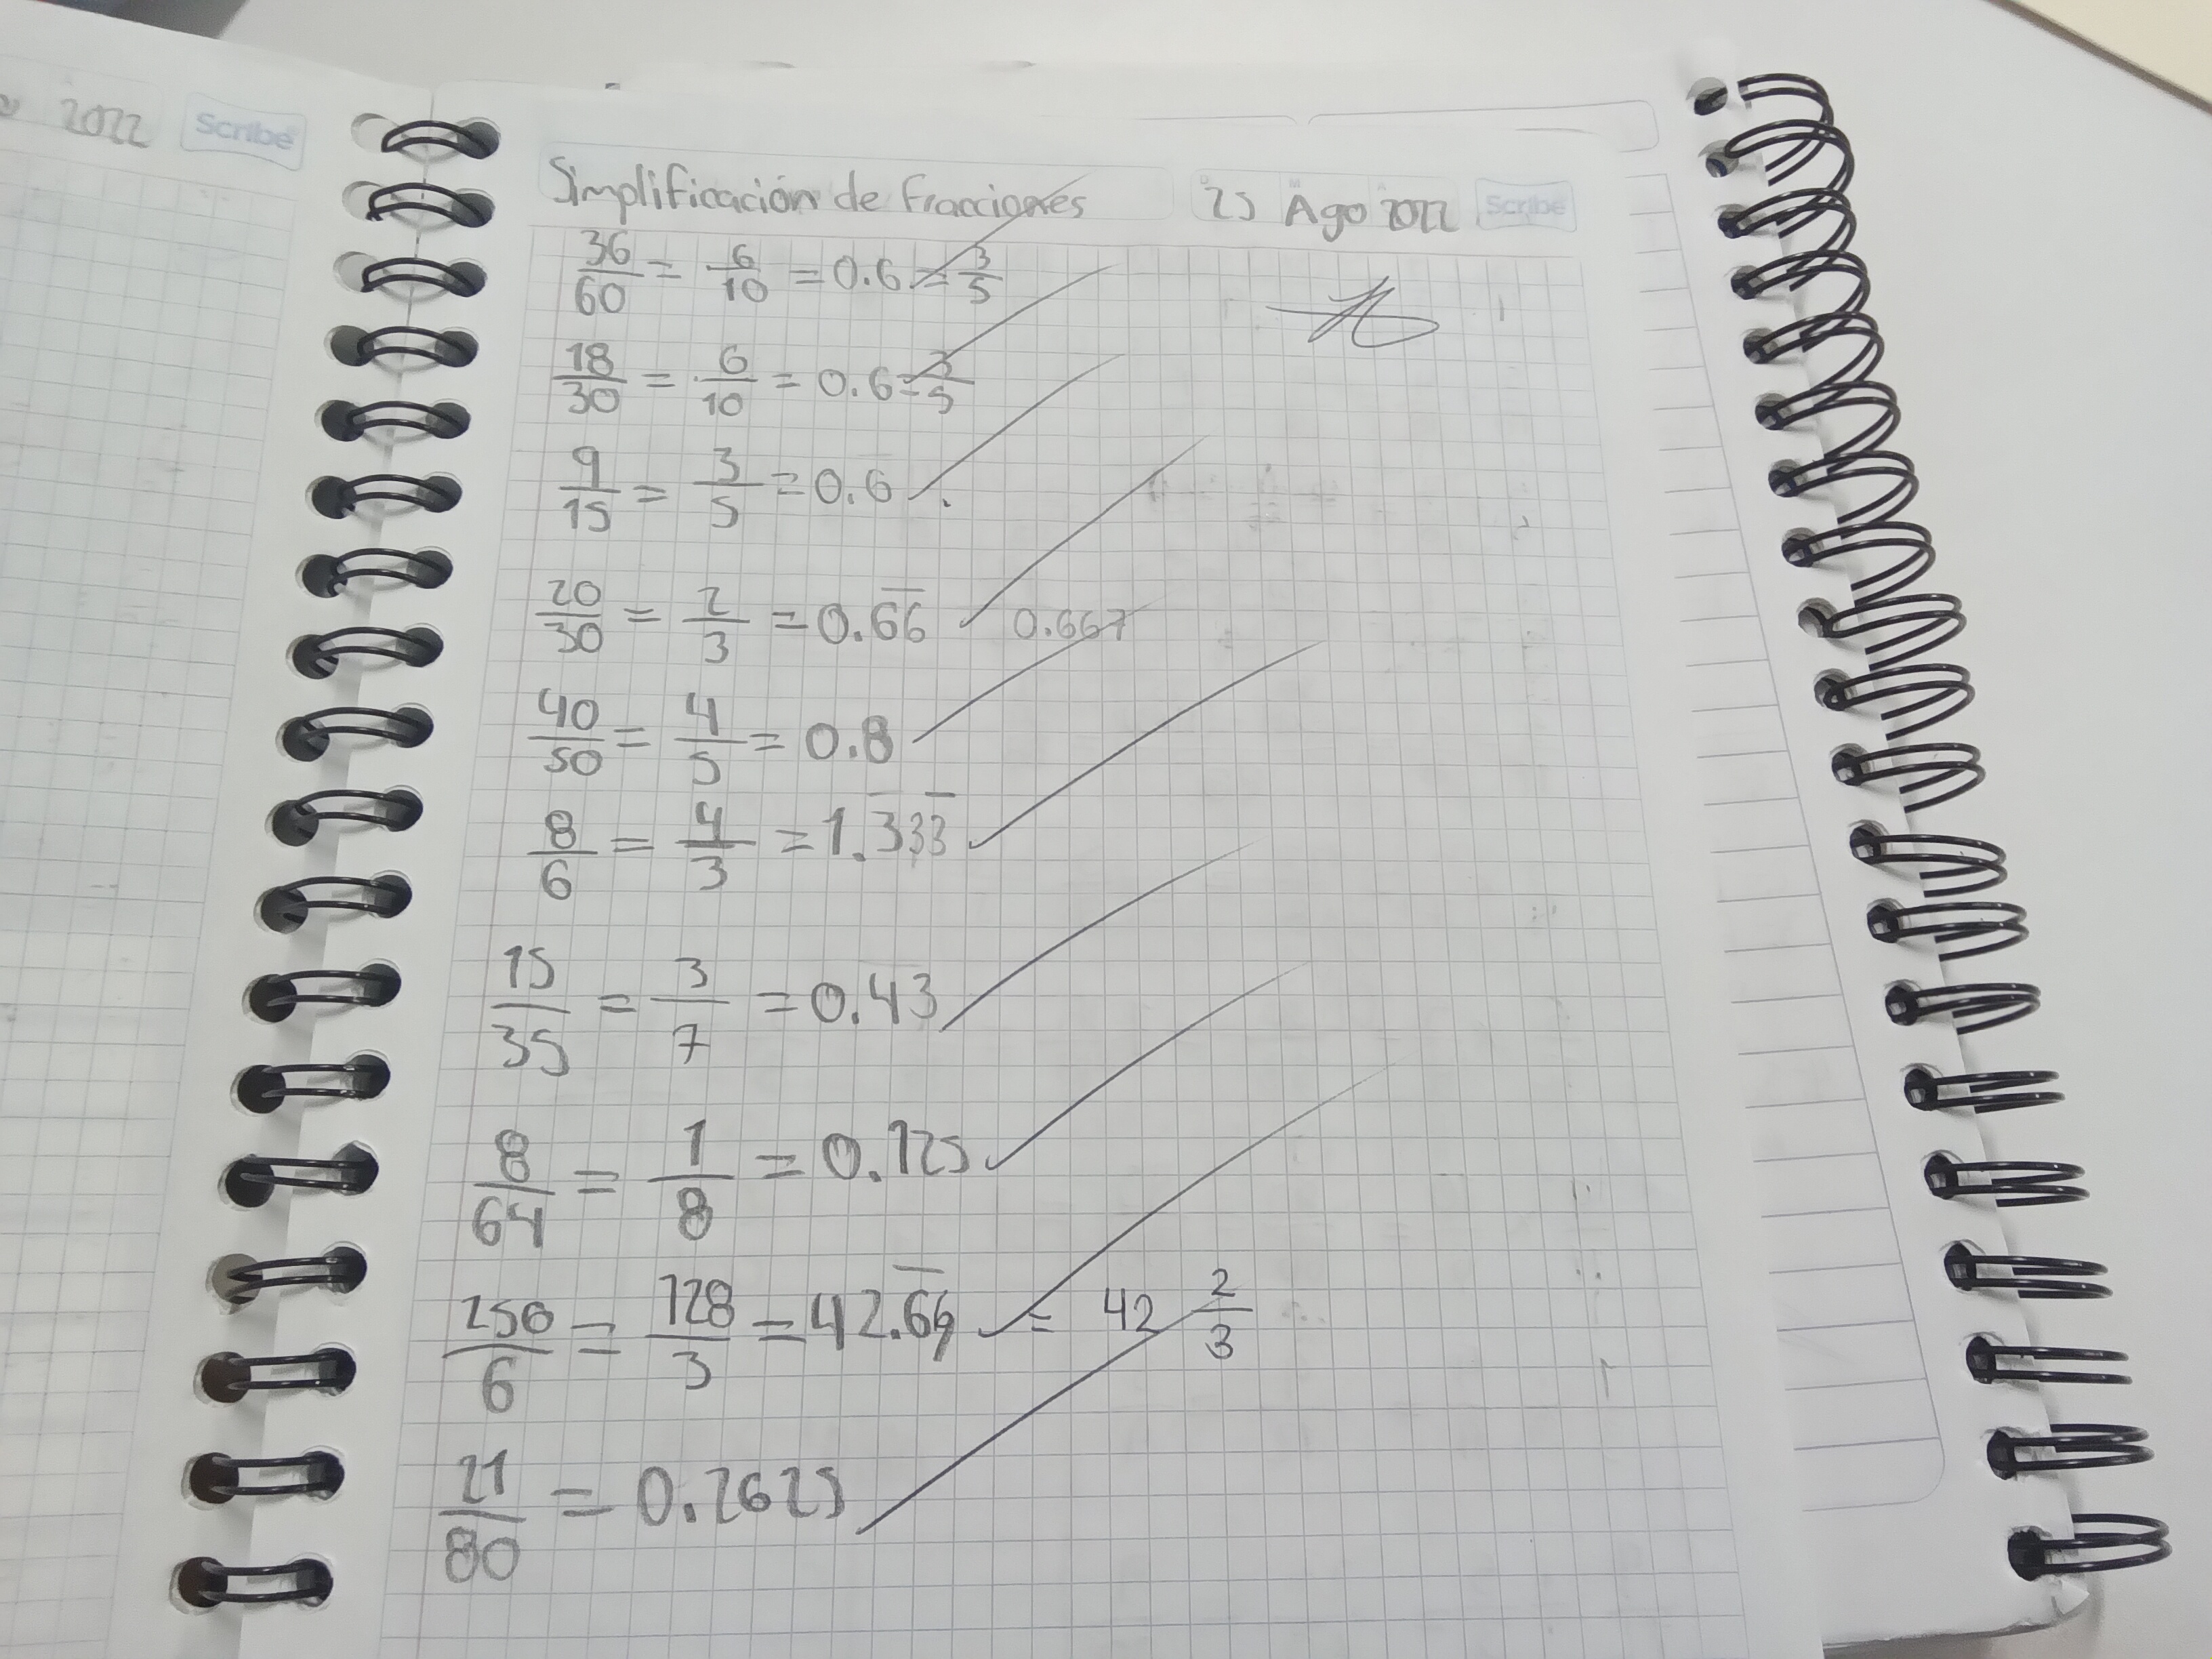 2022 Scribe
Simplificación de fracciones 25 Ago 2022 Scribe
36/60 = 6/10 = 0.6 = 3/5
18/30 = 6/10 = 0.6 = 3/5
9/15 = 3/5 = 0.6
20/30 = 2/3 = 0.6̅6̅ 0.667
40/50 = 4/5 = 0.8
8/6 = 4/3 = 1.3̅33̅
15/35 = 3/7 = 0.43
8/64 = 1/8 = 0.125
256/6 = 128/3 = 42.6̅6̅ = 42 2/3
21/80 = 0.2625